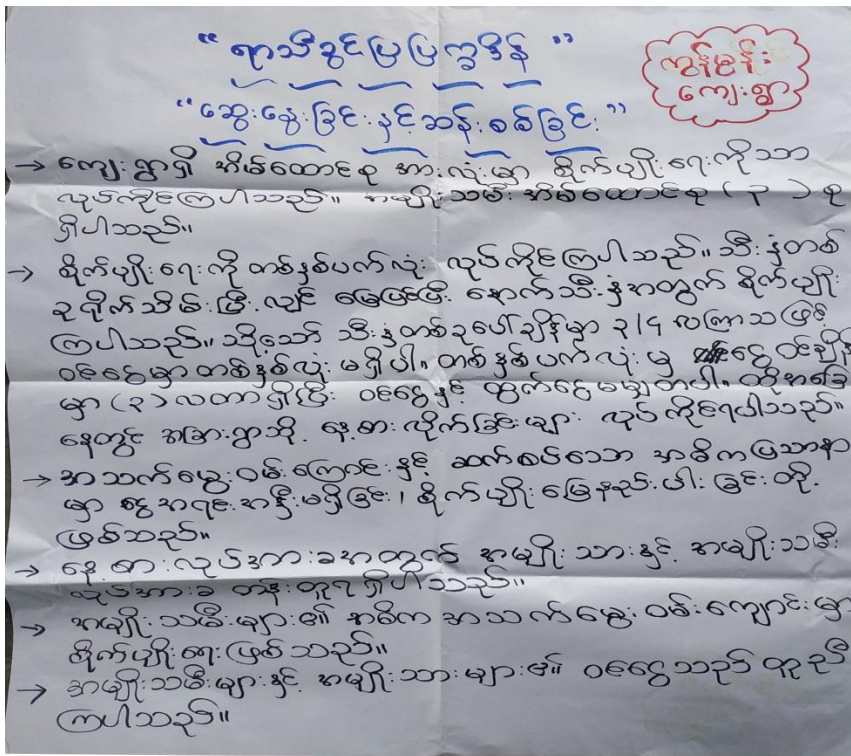 “ ရာသီခွင်ပြပြက္ခဒိန် ”
ကွန်စွန်း
ကျေးရွာ
“ဆွေးနွေးခြင်းနှင့်ဆန်းစစ်ခြင်း”
→ ကျေးရွာရှိ အိမ်ထောင်စု အားလုံးမှာ စိုက်ပျိုးရေးကိုသာ
လုပ်ကိုင်ကြပါသည်။ အမျိုးသမီးအိမ်ထောင်စု ( ၃ ) စု
ရှိပါသည်။
→ စိုက်ပျိုးရေးကို တစ်နှစ်ပတ်လုံး လုပ်ကိုင်ကြပါသည်။ သီးနှံတစ်
ခုရိုက်သိမ်းပြီးလျှင် မြေပြင်ပြီး နောက်သီးနှံအတွက် စိုက်ပျိုး
ကြပါသည်။ သို့သော် သီးနှံတစ်ခုပေါ်ချိန်မှာ ၃/၄ လကြာသဖြင့်
ဝင်ငွေမှာတစ်နှစ်လုံး မရှိပါ။ တစ်နှစ်ပတ်လုံးမှ ငွေဝင်ချိန်
မှာ (၃) လသာရှိပြီး ဝင်ငွေနှင့် ထွက်ငွေမမျှတပါ။ ထိုအခြေ
နေတွင် အခြားရွာသို့ နေ့စားလိုက်ခြင်းများ လုပ်ကိုင်ရပါသည်။
→ အသက်မွေးဝမ်းကြောင်းနှင့် ဆက်စပ်သော အဓိကပြဿနာ
မှာ ငွေအရင်းအနှီးမရှိခြင်း၊ စိုက်ပျိုးမြေနည်းပါးခြင်းတို့
ဖြစ်သည်။
→ နေ့စားလုပ်အားခအတွက် အမျိုးသားနှင့် အမျိုးသမီး
လုပ်အားခ တန်းတူရရှိပါသည်။
→ အမျိုးသမီးများ၏ အဓိက အသက်မွေးဝမ်းကျောင်းမှာ
စိုက်ပျိုးရေးဖြစ်သည်။
→ အမျိုးသမီးများနှင့် အမျိုးသားများ၏ ဝင်ငွေသည် တူညီ
ကြပါသည်။